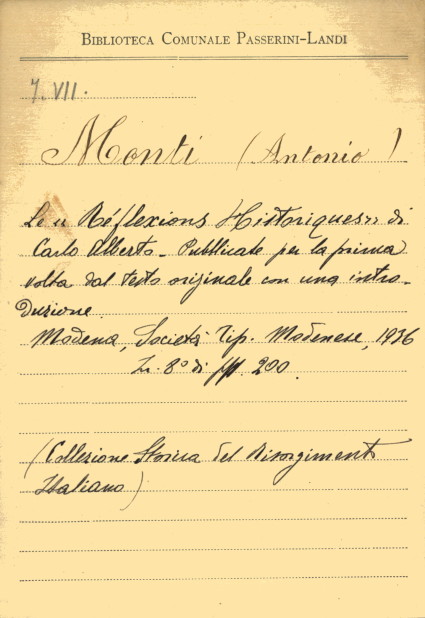 BIBLIOTECA COMUNALE PASSERINI-LANDI
7. VII.
Monti (Antonio)
Le "Réflexions Historiques" di
Carlo Alberto - Pubblicate per la prima
volta dal testo originale con una intro-
duzione.
Modena, Società Tip. Modenese, 1936
In 8º di pp. 200.
(Collezione Storica del Risorgimento
Italiano)